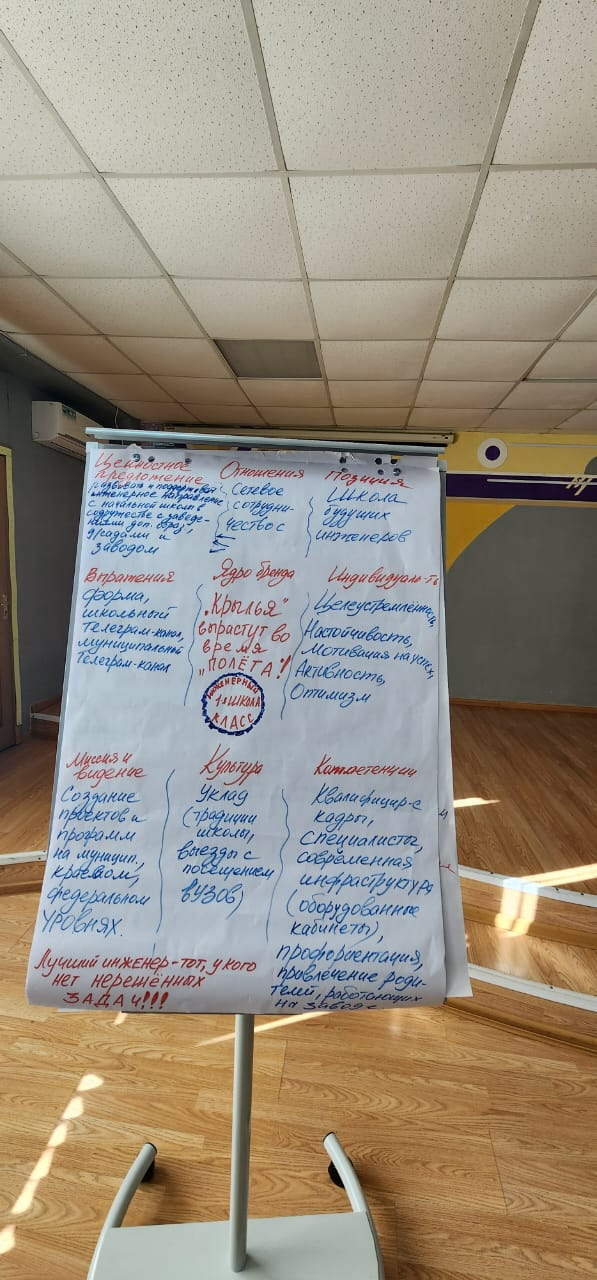 Ценностное
предложение
развивать и поддерживать
инженерное направление
с начальной школы в
содружестве с заведе-
ниями доп. образ.,
д/садами и
заводом
Отношения
Сетевое
сотрудни-
чество с
Позиция
Школа
будущих
инженеров
Выражения
Форма,
школьный
Телеграм-канал,
муниципальный
Телеграм-канал
Ядро бренда
„Крылья"
вырастут во
время
„ПОЛЁТА"!
ИНЖЕНЕРНЫЙ
1-я ШКОЛА
КЛАСС
Индивидуаль-ть
Целеустремлённость,
Настойчивость,
Мотивация на успех,
Активность,
Оптимизм
Миссия и
видение
Создание
проектов и
программ
на муницип.,
краевом,
федеральном
уровнях.
Культура
Уклад
(традиции
школы,
выезды с
посещением
ВУЗов)
Компетенции
Квалифицир-е
кадры,
специалисты,
современная
инфраструктура
(оборудованные
кабинеты),
профориентация,
привлечение роди-
телей, работающих
на заводе
Лучший инженер-тот, у кого
нет нерешённых
ЗАДАЧ!!!